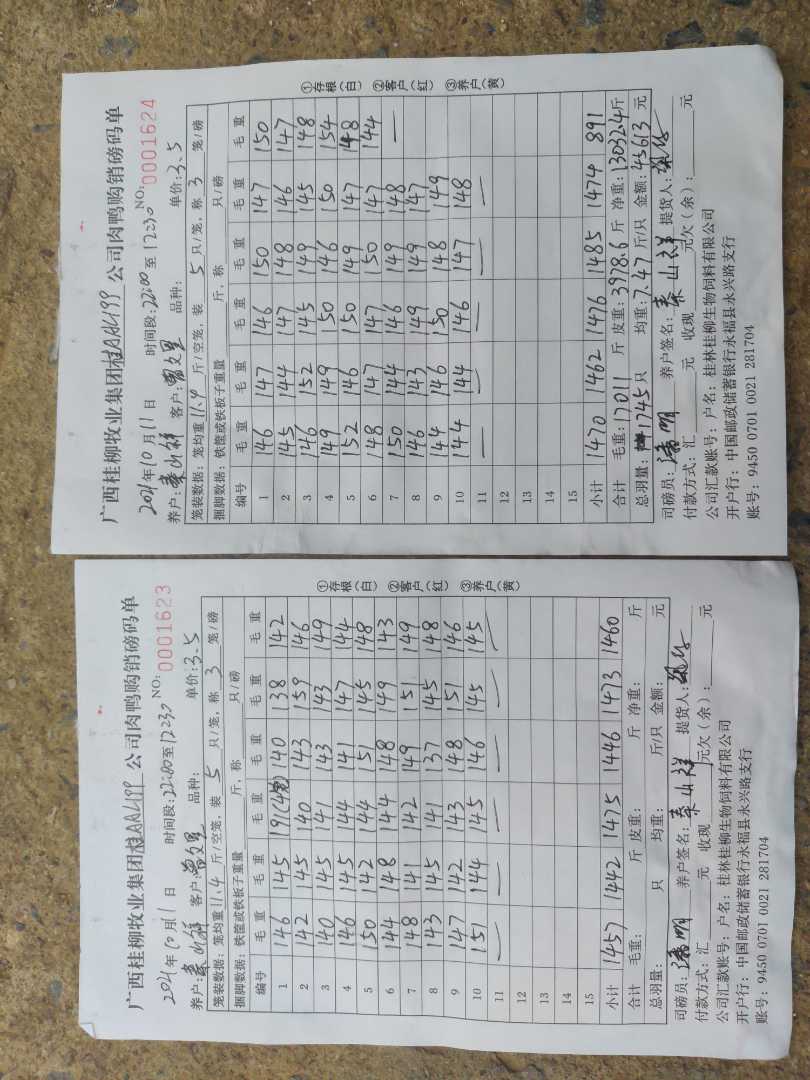 广西桂柳牧业集团 公司肉鸭购销磅码单
2021年10月11日 时间段:22:00至1230 NO: 0001623
养户:秦山祥 客户:曾文里 品种: 单价:3.5
笼装数据: 笼均重11.4斤/空笼,装5只/笼,称3笼/磅
捆脚数据: 铁筐或铁板子重量 斤,称 只/磅
编号 毛重 毛重 毛重 毛重 毛重 毛重
1 146 145 191(4笼) 140 138 142
2 142 145 140 143 159 146
3 140 145 141 143 143 149
4 146 145 144 141 147 144
5 150 142 144 151 145 148
6 144 148 144 148 149 143
7 148 141 142 149 151 149
8 143 145 141 137 145 148
9 147 142 143 148 151 146
10 151 144 145 146 145 145
11 — — — — — —
12
13
14
15
小计 1457 1442 1475 1446 1473 1460
合计 毛重: 斤 皮重: 斤 净重: 斤
总羽量: 只 均重: 斤/只 金额: 元
司磅员: 养户签名:秦山祥 提货人:
付款方式: 汇 元 收现 元欠(余): 元
公司汇款账号: 户名: 桂林桂柳生物饲料有限公司
开户行: 中国邮政储蓄银行永福县永兴路支行
账号: 9450 0701 0021 281704
①存根(白) ②客户(红) ③养户(黄)
广西桂柳牧业集团 公司肉鸭购销磅码单
2021年10月11日 时间段:22:00至1230 NO: 0001624
养户:秦山祥 客户:曾文里 品种: 单价:3.5
笼装数据: 笼均重11.4斤/空笼,装5只/笼,称3笼/磅
捆脚数据: 铁筐或铁板子重量 斤,称 只/磅
编号 毛重 毛重 毛重 毛重 毛重 毛重
1 146 147 146 150 147 150
2 145 144 147 148 146 147
3 146 152 145 149 145 148
4 149 149 150 146 150 154
5 152 146 150 149 147 148
6 148 147 147 150 147 144
7 150 144 146 149 148 —
8 146 143 149 149 147
9 144 146 150 148 149
10 144 144 146 147 148
11 — — — — —
12
13
14
15
小计 1470 1462 1476 1485 1474 891
合计 毛重:17011斤 皮重:3978.6斤 净重:13032.4斤
总羽量:1745只 均重:7.47斤/只 金额:45613元
司磅员: 养户签名:秦山祥 提货人:
付款方式: 汇 元 收现 元欠(余): 元
公司汇款账号: 户名: 桂林桂柳生物饲料有限公司
开户行: 中国邮政储蓄银行永福县永兴路支行
账号: 9450 0701 0021 281704
①存根(白) ②客户(红) ③养户(黄)